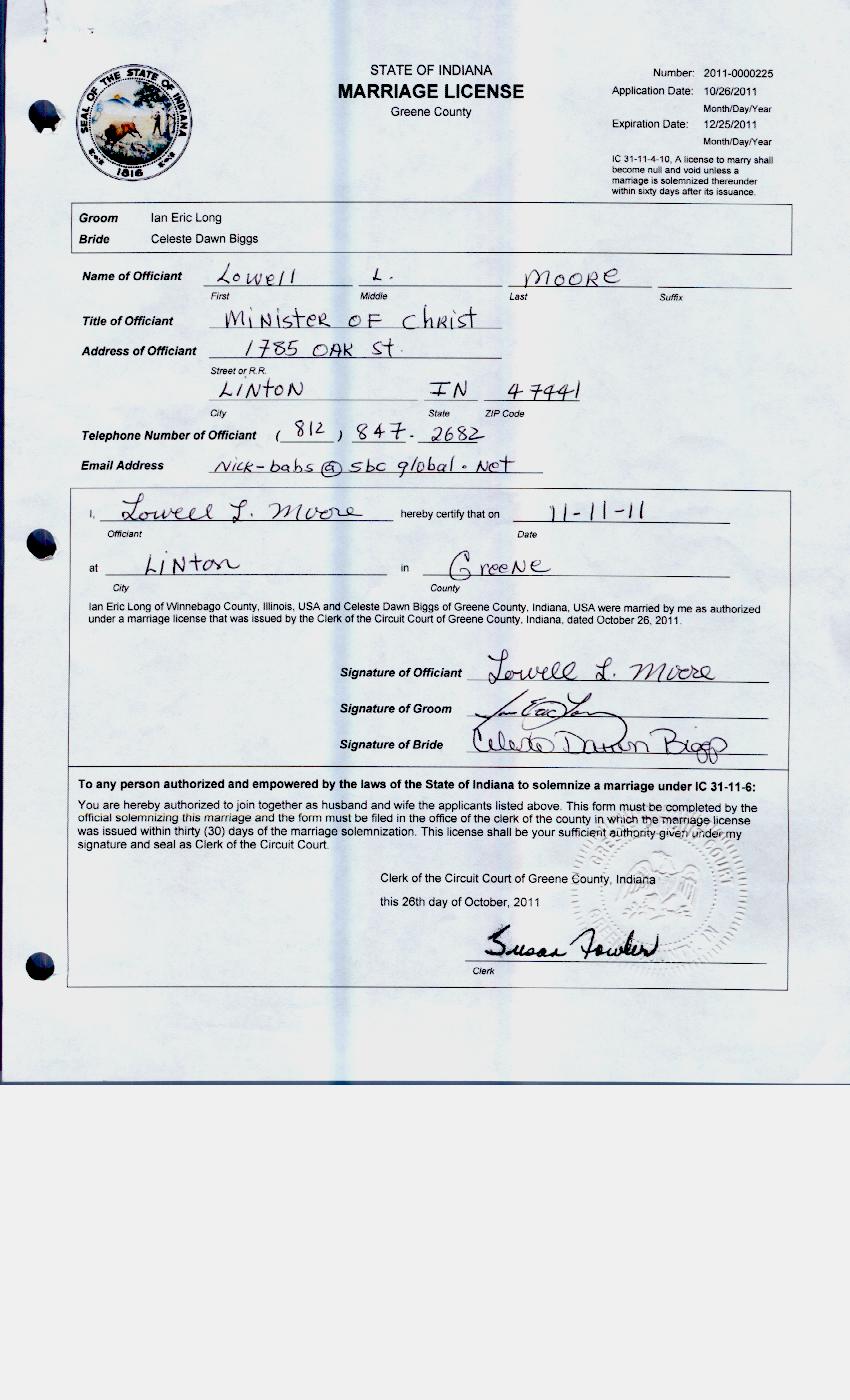 STATE OF INDIANA
MARRIAGE LICENSE
Greene County
SEAL OF THE STATE OF INDIANA
1816
Number: 2011-0000225
Application Date: 10/26/2011
Month/Day/Year
Expiration Date: 12/25/2011
Month/Day/Year
IC 31-11-4-10, A license to marry shall
become null and void unless a
marriage is solemnized thereunder
within sixty days after its issuance.
Groom Ian Eric Long
Bride Celeste Dawn Biggs
Name of Officiant Lowell L. MOORE
First Middle Last Suffix
Title of Officiant MINISTER OF CHRIST
Address of Officiant 1785 OAK St.
Street or R.R.
LINTON IN 47441
City State ZIP Code
Telephone Number of Officiant (812) 847-2682
Email Address Nick-bahs@sbcglobal.Net
I, Lowell L. Moore hereby certify that on 11-11-11
Officiant Date
at LINton in GreeNe
City County
Ian Eric Long of Winnebago County, Illinois, USA and Celeste Dawn Biggs of Greene County, Indiana, USA were married by me as authorized
under a marriage license that was issued by the Clerk of the Circuit Court of Greene County, Indiana, dated October 26, 2011.
Signature of Officiant Lowell L. Moore
Signature of Groom Ian Eric Long
Signature of Bride Celeste Dawn Biggs
To any person authorized and empowered by the laws of the State of Indiana to solemnize a marriage under IC 31-11-6:
You are hereby authorized to join together as husband and wife the applicants listed above. This form must be completed by the
official solemnizing this marriage and the form must be filed in the office of the clerk of the county in which the marriage license
was issued within thirty (30) days of the marriage solemnization. This license shall be your sufficient authority given under my
signature and seal as Clerk of the Circuit Court.
Clerk of the Circuit Court of Greene County, Indiana
this 26th day of October, 2011
Susan Fowler
Clerk